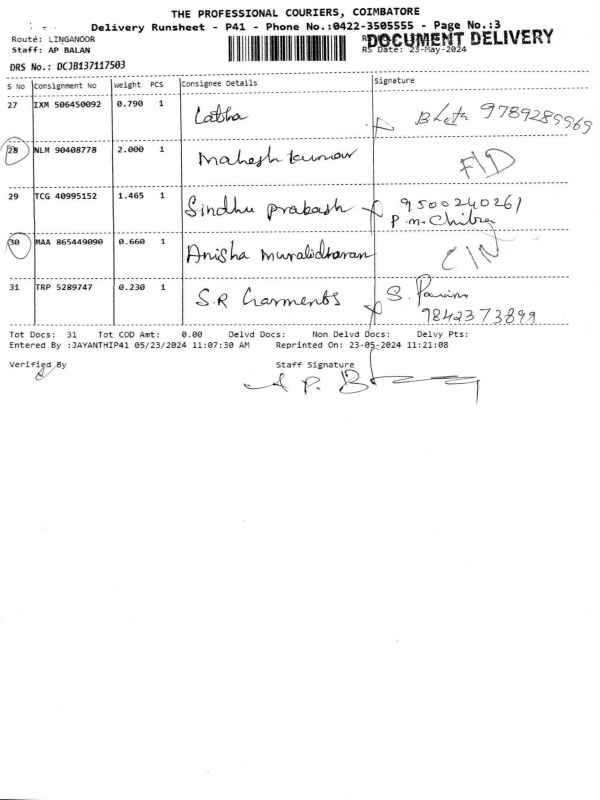 THE PROFESSIONAL COURIERS, COIMBATORE
Delivery Runsheet - P41 - Phone No.:0422-3505555 - Page No.:3
Route: LINGANOOR
DOCUMENT DELIVERY
Staff: AP BALAN
RS Date: 23-May-2024
DRS No.: DCJB137117503
S No Consignment No Weight PCS Consignee Details Signature
27 IXM 506450092 0.790 1 Latha 9789289969
28 NLM 90408778 2.000 1 Mahesh kumar F/D
29 TCG 40995152 1.465 1 Sindhu prabash 9500240261
P.M. Chitra
30 MAA 865449090 0.660 1 Anisha Muralidharan C/N
31 TRP 5289747 0.230 1 S.R Garments S.
9842373899
Tot Docs: 31 Tot COD Amt: 0.00 Delvd Docs: Non Delvd Docs: Delvy Pts:
Entered By :JAYANTHIP41 05/23/2024 11:07:30 AM Reprinted On: 23-05-2024 11:21:08
Verified By Staff Signature